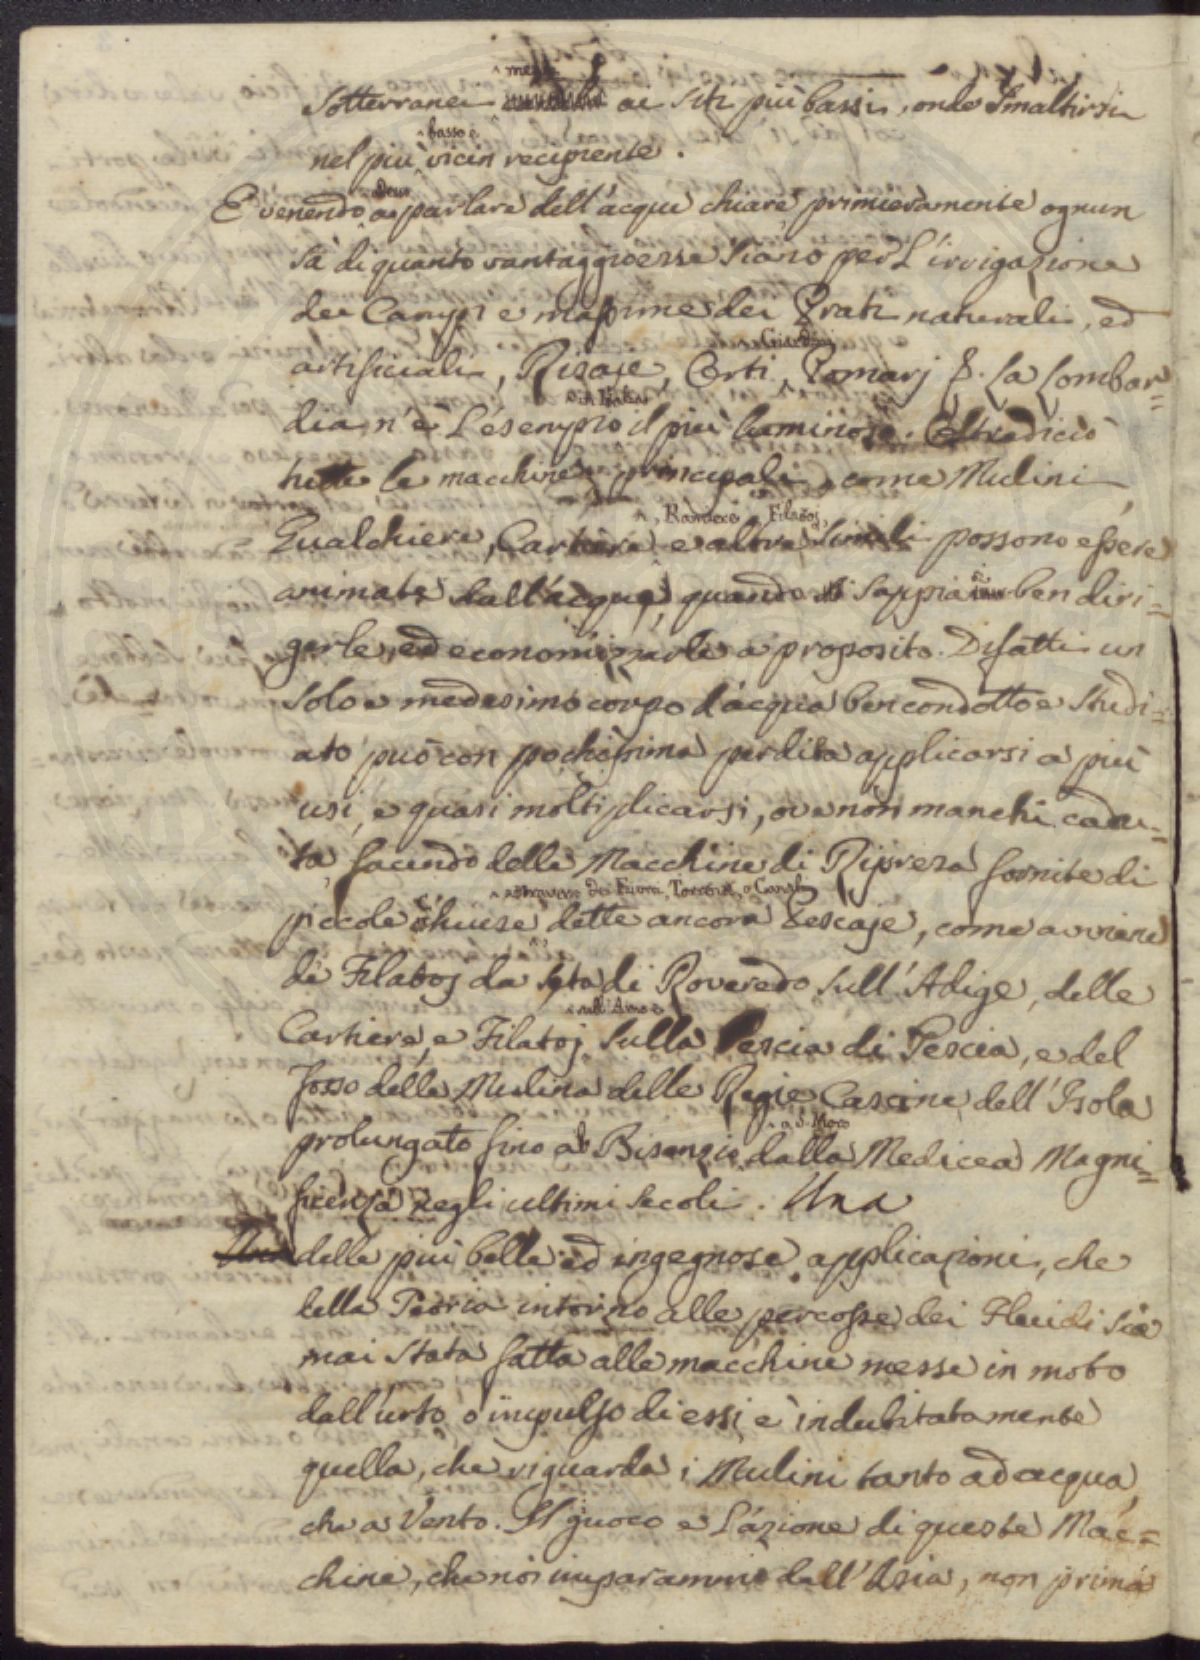 messi
Sotterranei ai siti più bassi, onde smaltirsi
basso e
nel più vicin recipiente.
E venendo a parlare dell'acque chiare primieramente ognun
sà di quanto vantaggio esse siano per l'irrigazione
dei Campi e massime dei Prati naturali, ed
Giardini
artificiali, Risaje, Orti, Pomarj &. La Lombar=
in Italia
dia n'è l'esempio il più luminoso. Oltrediciò
tutte le macchine principali, come Mulini,
, Ramiere, Filatoj,
Gualchiere, Cartiere e altre simili possono essere
animate dall'acqua, quando si sappia ben diri=
gerle, ed economizzarle a proposito. Difatti un
solo e medesimo corpo d'acqua ben condotto e studi=
ato può con pochissima perdita applicarsi a più
usi, e quasi moltiplicarsi, ove non manchi cadu=
ta, facendo delle Macchine di Ripresa fornite di
attraverso dei Fiumi, Torrenti, o Canali
piccole chiuse dette ancora Pescaje, come avviene
de Filatoj da seta di Roveredo sull'Adige, delle
Cartiere, e Filatoj sulla Pescia di Pescia, e del
fosso delle Mulina delle Regie Cascine dell'Isola
a S. Moro
prolungato fino al Bisenzio dalla Medicea Magni=
ficenza negli ultimi secoli. Una
Una delle più belle ed ingegnose applicazioni, che
della Teoria intorno alle percosse dei Fluidi sia
mai stata fatta alle macchine messe in moto
dall'urto, o impulso di essi è indubitatamente
quella, che riguarda i Mulini tanto ad acqua,
che a Vento. Il giuoco e l'azione di queste Mac=
chine, che noi imparammo dall'Asia, non prima